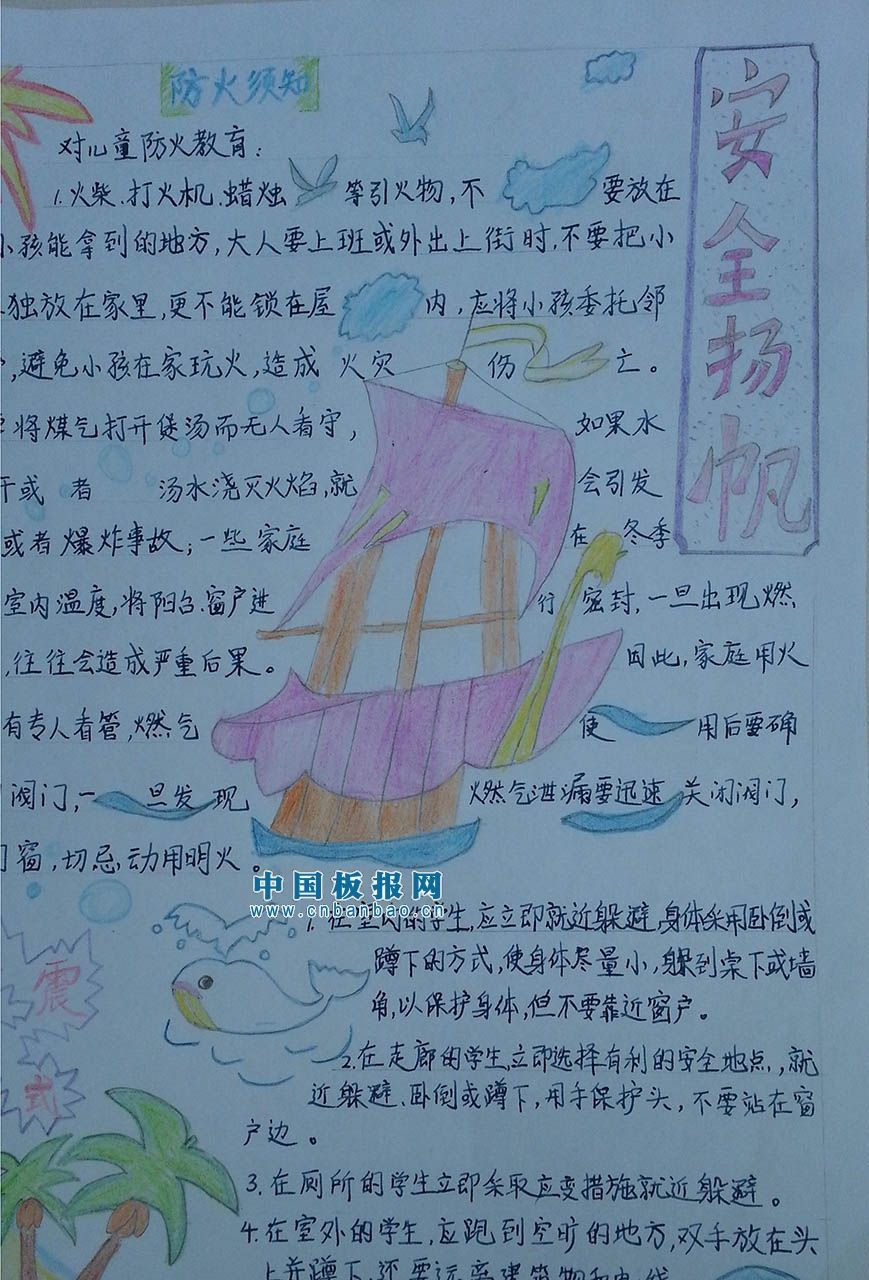 防火须知
安全扬帆
对儿童防火教育：
1.火柴、打火机、蜡烛等引火物，不要放在
小孩能拿到的地方，大人要上班或外出上街时，不要把小
独放在家里，更不能锁在屋内，应将小孩委托邻
，避免小孩在家玩火，造成火灾伤亡。
将煤气打开煲汤而无人看守，如果水
干或者汤水浇灭火焰，就会引发
或者爆炸事故；一些家庭在冬季
室内温度，将阳台、窗户进行密封，一旦出现燃
，往往会造成严重后果。因此，家庭用火
有专人看管，燃气使用后要确
阀门，一旦发现燃气泄漏要迅速关闭阀门，
门窗，切忌动用明火。
中国板报网
www.cnbanbao.cn
震
式
1.在室内的学生，应立即就近躲避，身体采用卧倒或
蹲下的方式，使身体尽量小，躲到桌下或墙
角，以保护身体，但不要靠近窗户。
2.在走廊的学生，立即选择有利的安全地点，，就
近躲避、卧倒或蹲下，用手保护头，不要站在窗
户边。
3.在厕所的学生立即采取应变措施就近躲避。
4.在室外的学生，应跑到空旷的地方，双手放在头
上并蹲下，还要远离建筑物和电线